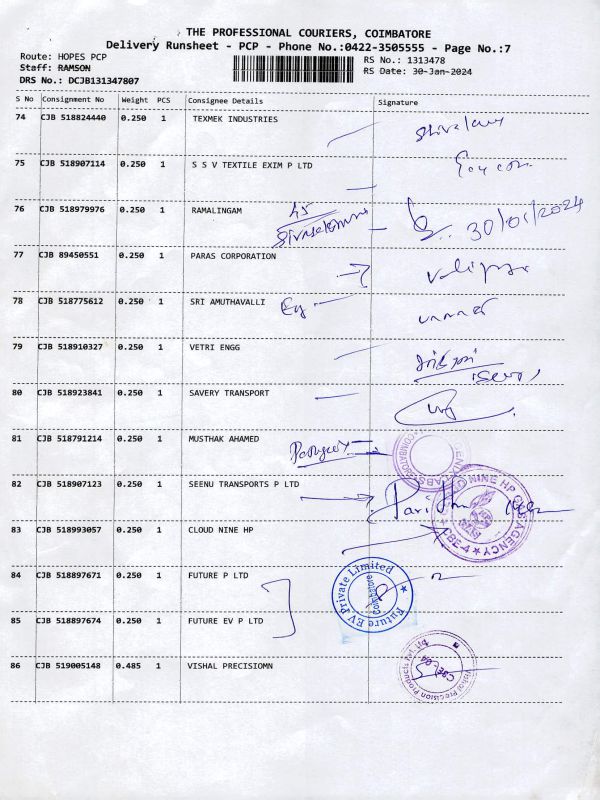 THE PROFESSIONAL COURIERS, COIMBATORE
Delivery Runsheet - PCP - Phone No.:0422-3505555 - Page No.:7
Route: HOPES PCP
Staff: RAMSON
DRS No.: DCJB131347807
RS No.: 1313478
RS Date: 30-Jan-2024
S No Consignment No Weight PCS Consignee Details Signature
74 CJB 518824440 0.250 1 TEXMEK INDUSTRIES
75 CJB 518907114 0.250 1 S S V TEXTILE EXIM P LTD
76 CJB 518979976 0.250 1 RAMALINGAM 30/01/2024
77 CJB 89450551 0.250 1 PARAS CORPORATION
78 CJB 518775612 0.250 1 SRI AMUTHAVALLI
79 CJB 518910327 0.250 1 VETRI ENGG
80 CJB 518923841 0.250 1 SAVERY TRANSPORT
81 CJB 518791214 0.250 1 MUSTHAK AHAMED
82 CJB 518907123 0.250 1 SEENU TRANSPORTS P LTD
83 CJB 518993057 0.250 1 CLOUD NINE HP
NINE HP GAS AGENCY
CBE-4
84 CJB 518897671 0.250 1 FUTURE P LTD
Future EV Private Limited
Coimbatore
85 CJB 518897674 0.250 1 FUTURE EV P LTD
86 CJB 519005148 0.485 1 VISHAL PRECISIOMN
Vishal Precision Products Pvt. Ltd.
CBE-04